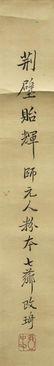 荆璧貽輝 師元人粉本 七薌改琦